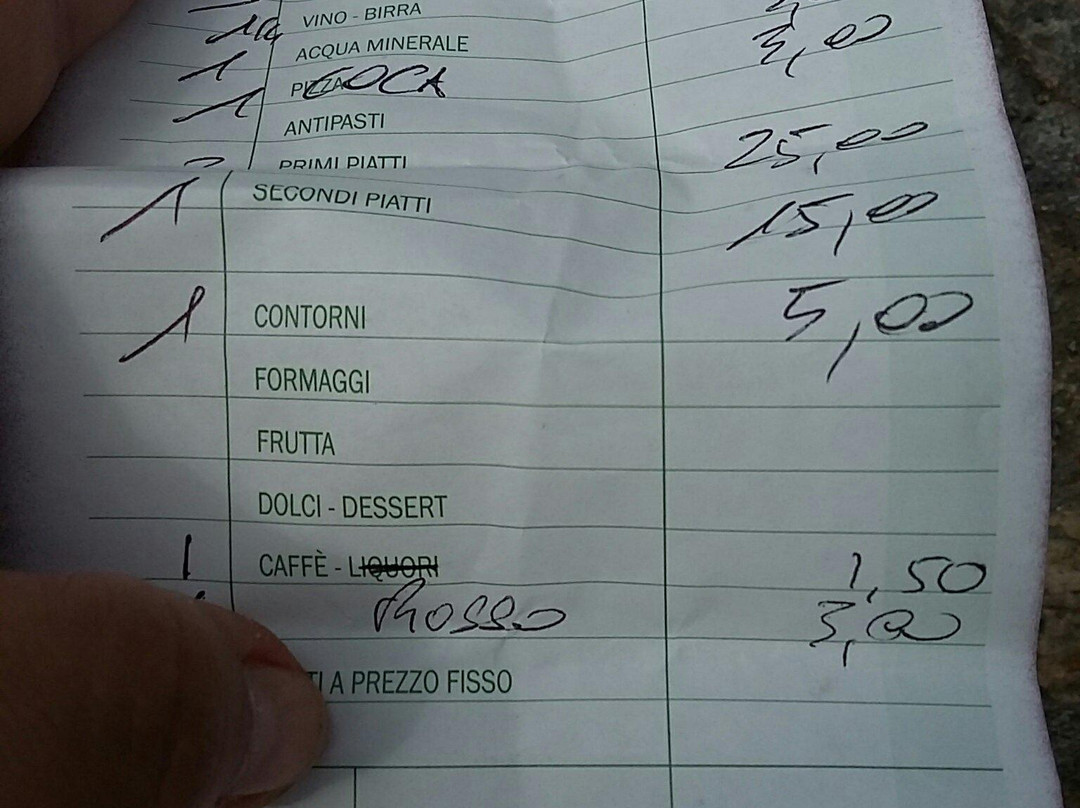 1/4 VINO - BIRRA
1 ACQUA MINERALE 3,00
1 PIZZA COCA
ANTIPASTI
PRIMI PIATTI 25,00
1 SECONDI PIATTI 15,00
1 CONTORNI 5,00
FORMAGGI
FRUTTA
DOLCI - DESSERT
1 CAFFÈ - LIQUORI 1,50
3,00
TI A PREZZO FISSO